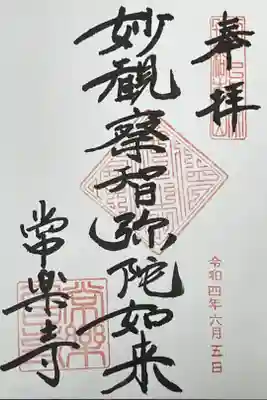 奉拝
令和四年六月五日
妙観察智弥陀如来
常楽寺